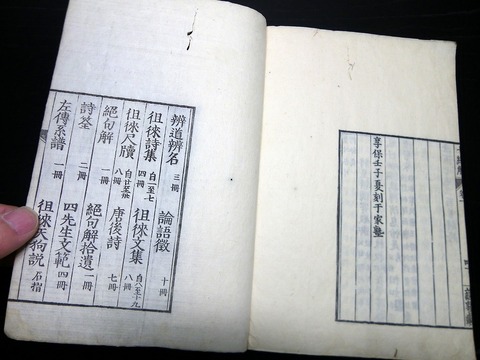 享保壬子夏刻于家塾
辨道辨名 三冊 論語徵 十冊
徂徠詩集 自一至七 四冊 徂徠文集 自八至十九 八冊
徂徠尺牘 八冊 唐後詩 七冊
絕句解 一冊 絕句解拾遺 一冊
詩筌 二冊 四先生文範 四冊
左傳系譜 一冊 徂徠天狗説 石摺